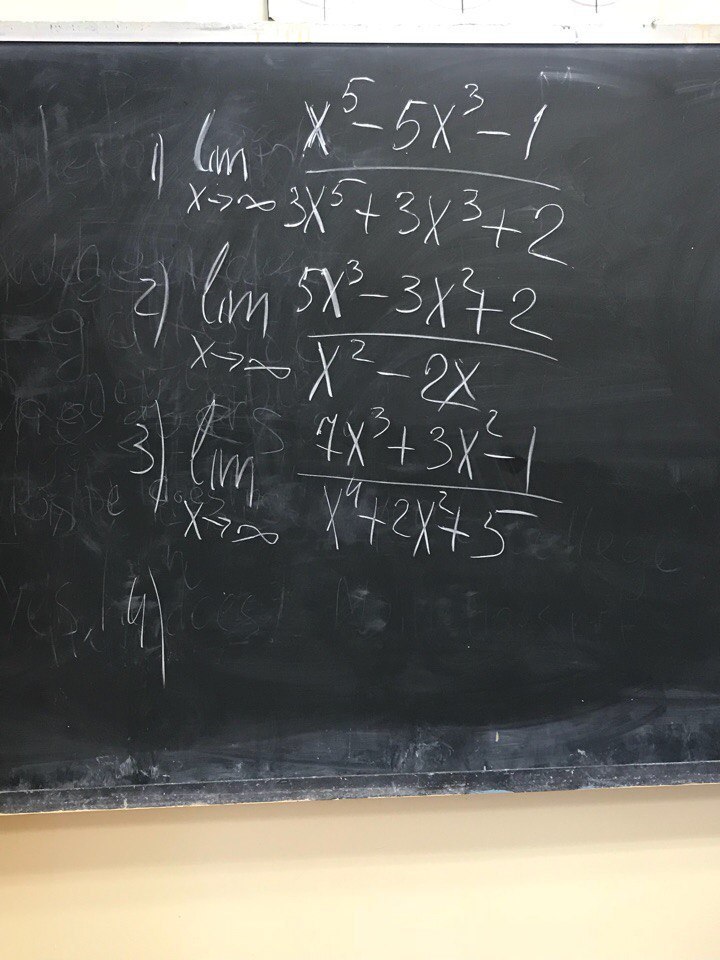 1) lim x→∞ (x⁵ - 5x³ - 1) / (3x⁵ + 3x³ + 2)
2) lim x→∞ (5x³ - 3x² + 2) / (x² - 2x)
3) lim x→∞ (7x³ + 3x² - 1) / (x⁴ + 2x² + 5)
4)